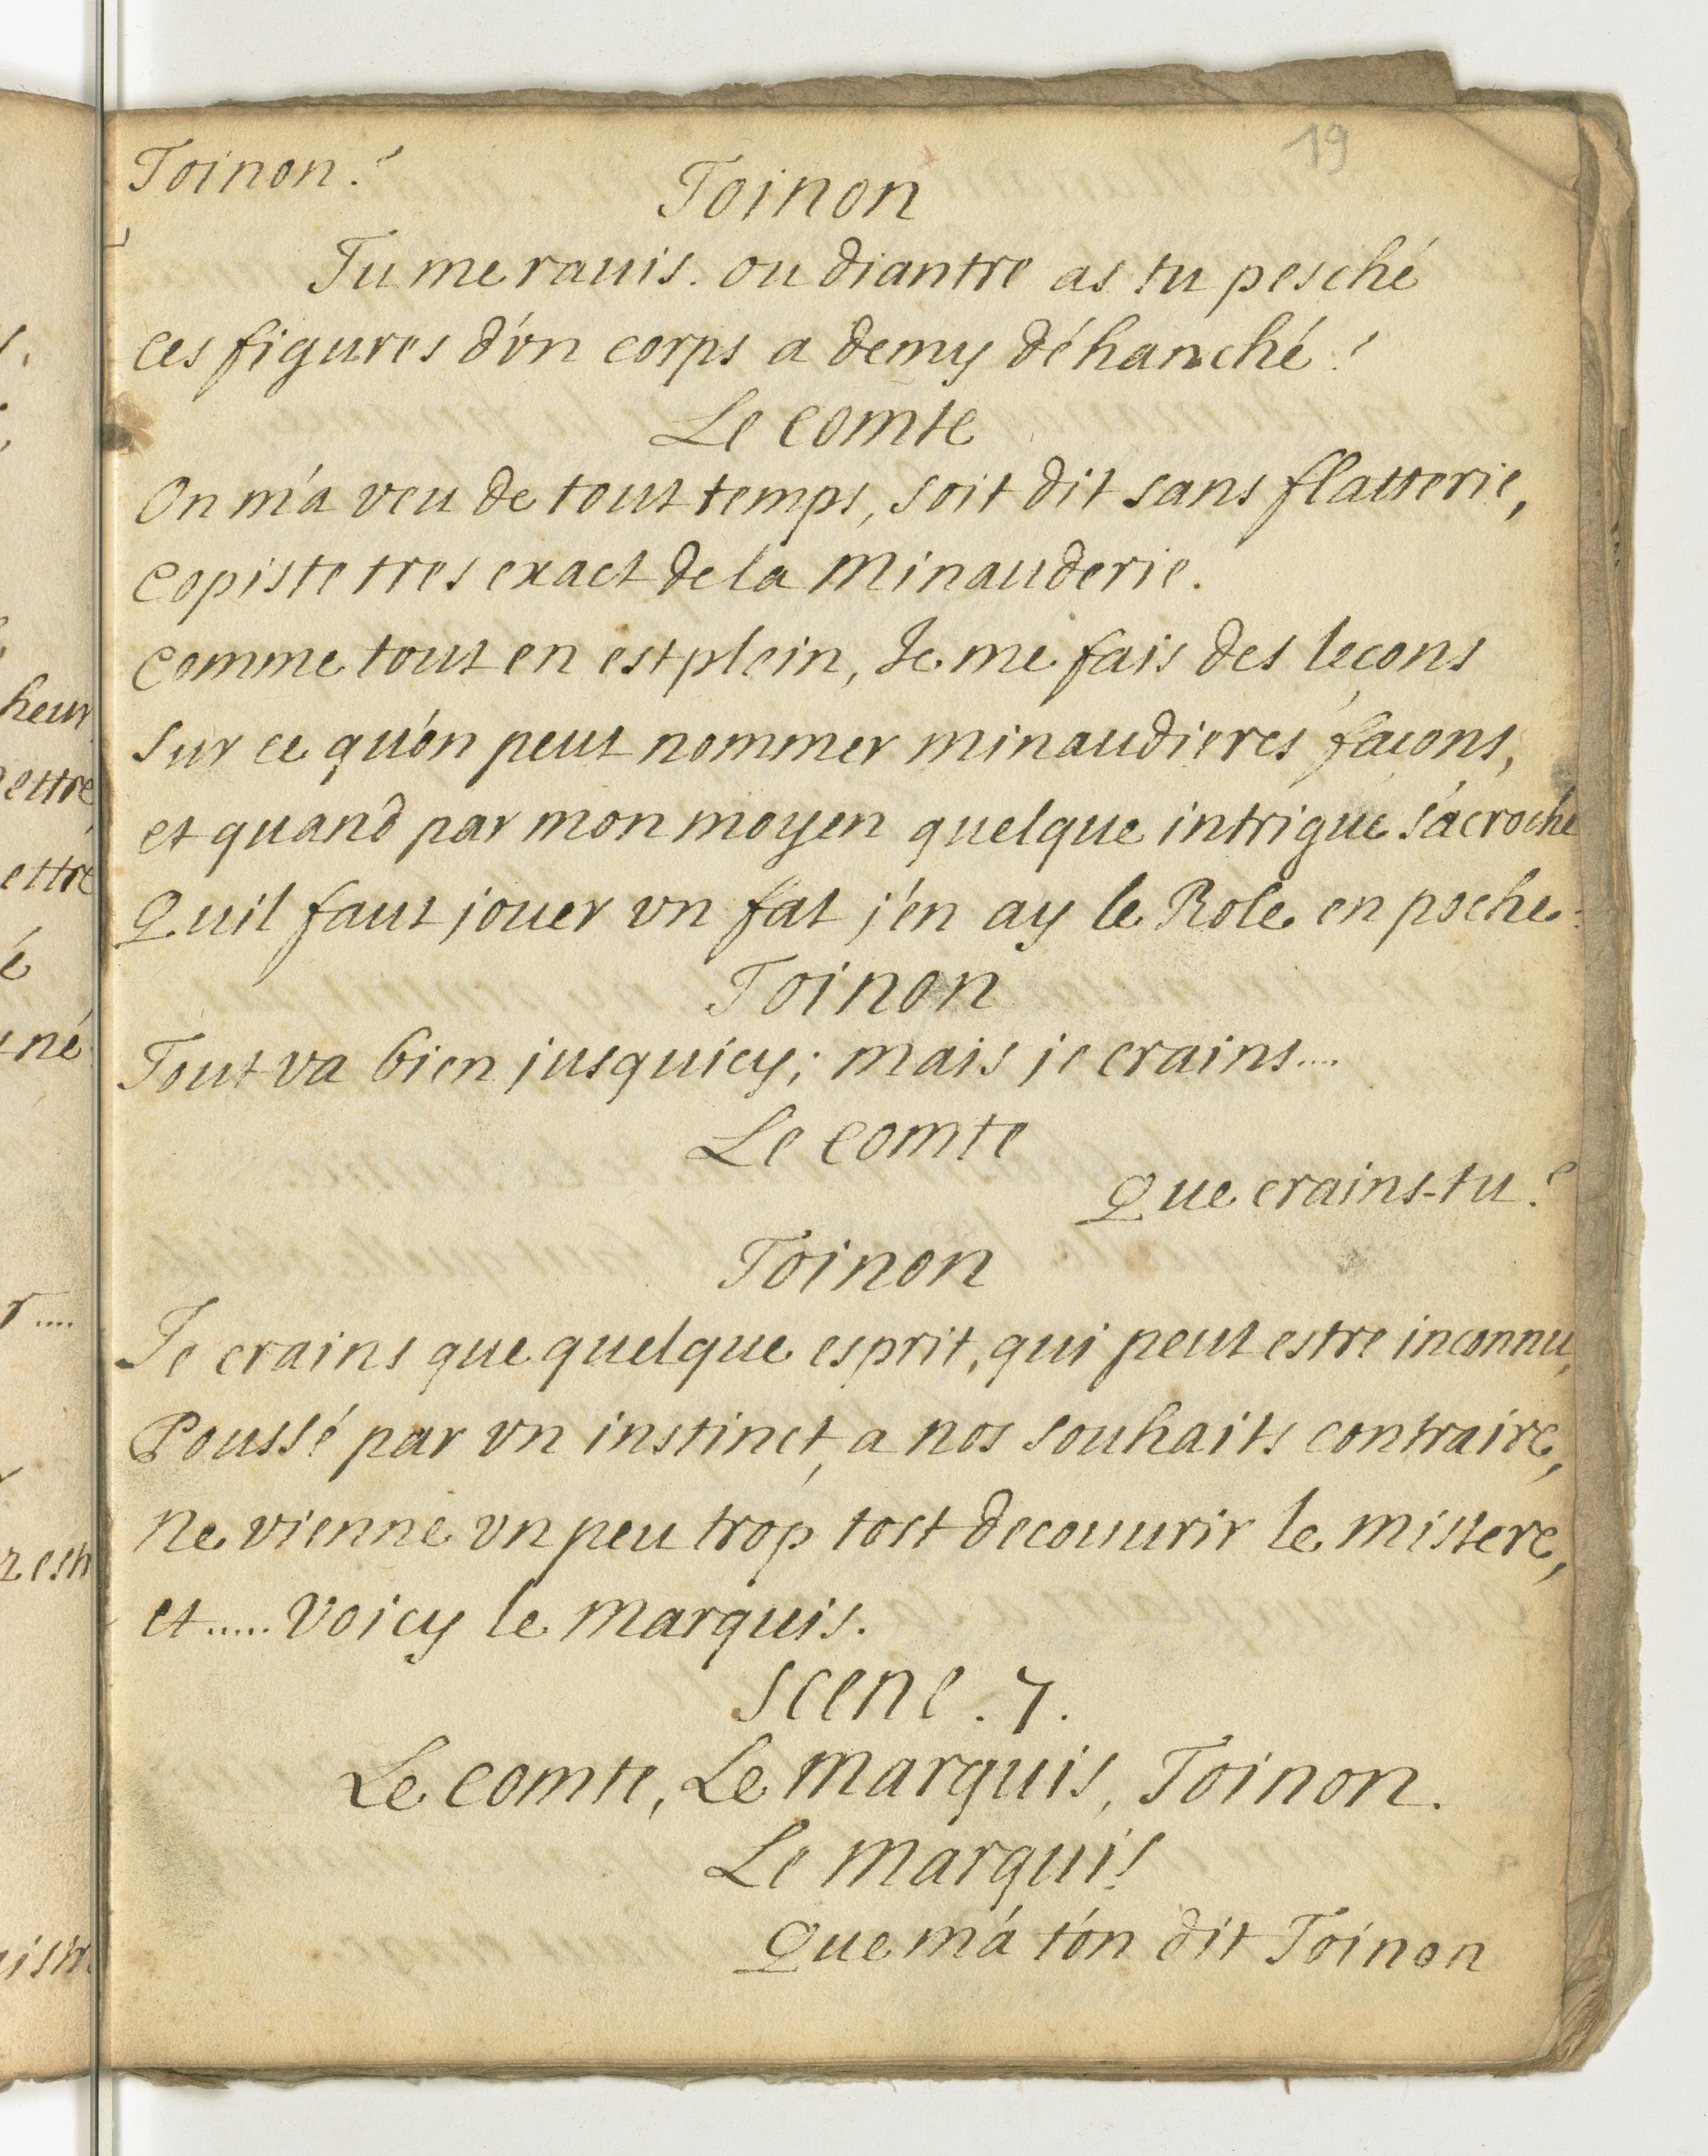 19
Toinon?
Toinon
Tu me rauis. ou diantre as tu pesché
ces figures d'vn corps a demy déhanché?
Le comte
On m'a veu de tout temps, soit dit sans flatterie,
copiste tres exact de la minauderie.
comme tout en est plein, Je me fais des leçons
sur ce qu'on peut nommer minaudieres façons,
et quand par mon moyen quelque intrigue s'acroche
Quil faut jouer vn fat j'en ay le Role en poche.
Toinon
Tout va bien jusquicy; mais je crains....
Le comte
Que crains-tu?
Toinon
Je crains que quelque esprit, qui peut estre inconnu,
Poussé par vn instinct, a nos souhaits contraire,
ne vienne vn peu trop tost decouurir le mistere,
et..... voicy le marquis.
scene. 7.
Le comte, Le marquis, Toinon.
Le marquis
Que m'a t'on dit Toinon